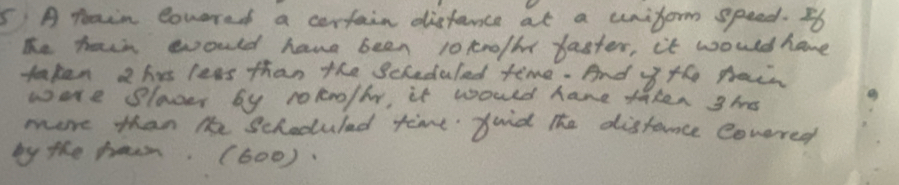 5) A train covered a certain distance at a uniform speed. If
the train would have been 10 km/hr faster, it would have
taken 2 hrs less than the scheduled time. And if the train
were slower by 10 km/hr, it would have taken 3 hrs
more than the scheduled time. find the distance covered
by the train. (600).